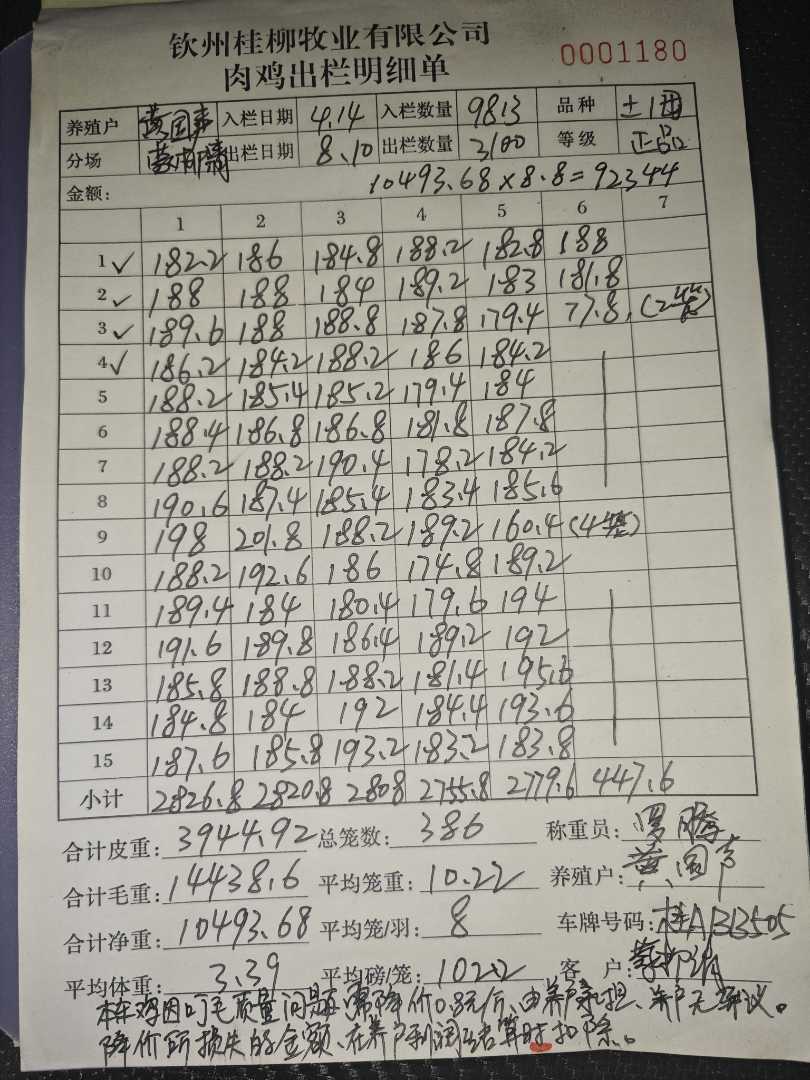 钦州桂柳牧业有限公司
肉鸡出栏明细单
0001180
养殖户 黄国声 入栏日期 4.14 入栏数量 9813 品种 土1
分场 出栏日期 8.10 出栏数量 3100 等级 正品
金额: 10493.68×8.8=92344
1 2 3 4 5 6 7
1 ✓ 182.2 186 184.8 188.2 182.8 188
2 ✓ 188 188 184 189.2 183 181.8
3 ✓ 189.6 188 188.8 187.8 179.4 77.8 (2
4 ✓ 186.2 184.2 188.2 186 184.2
5 188.2 185.4 185.2 179.4 184
6 188.4 186.8 186.8 181.8 187.8
7 188.2 188.2 190.4 178.2 184.2
8 190.6 187.4 185.4 183.4 185.6
9 198 201.8 188.2 189.2 160.4 (4
10 188.2 192.6 186 174.8 189.2
11 189.4 184 180.4 179.6 194
12 191.6 189.8 186.4 189.2 192
13 185.8 188.8 188.2 181.4 195.6
14 184.8 184 192 184.4 193.6
15 187.6 185.8 193.2 183.2 183.8
小计 2826.8 2820.8 2808 2755.8 2779.6 447.6
合计皮重: 3944.92 总笼数: 386 称重员:
合计毛重: 14438.6 平均笼重: 10.22 养殖户: 黄国声
合计净重: 10493.68 平均笼/羽: 8 车牌号码: 桂ABB505
平均体重: 3.39 平均磅/笼: 1022 客 户:
本车鸡因叮毛质量问题需降价0.8元/斤、由养户承担、养户无异议。
降价所损失的金额、在养户利润结算时扣除。